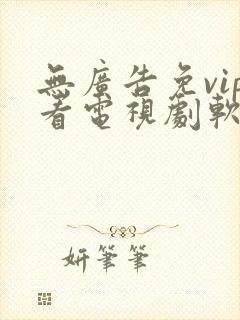 無廣告免vip
看電視劇軟
妍筆筆